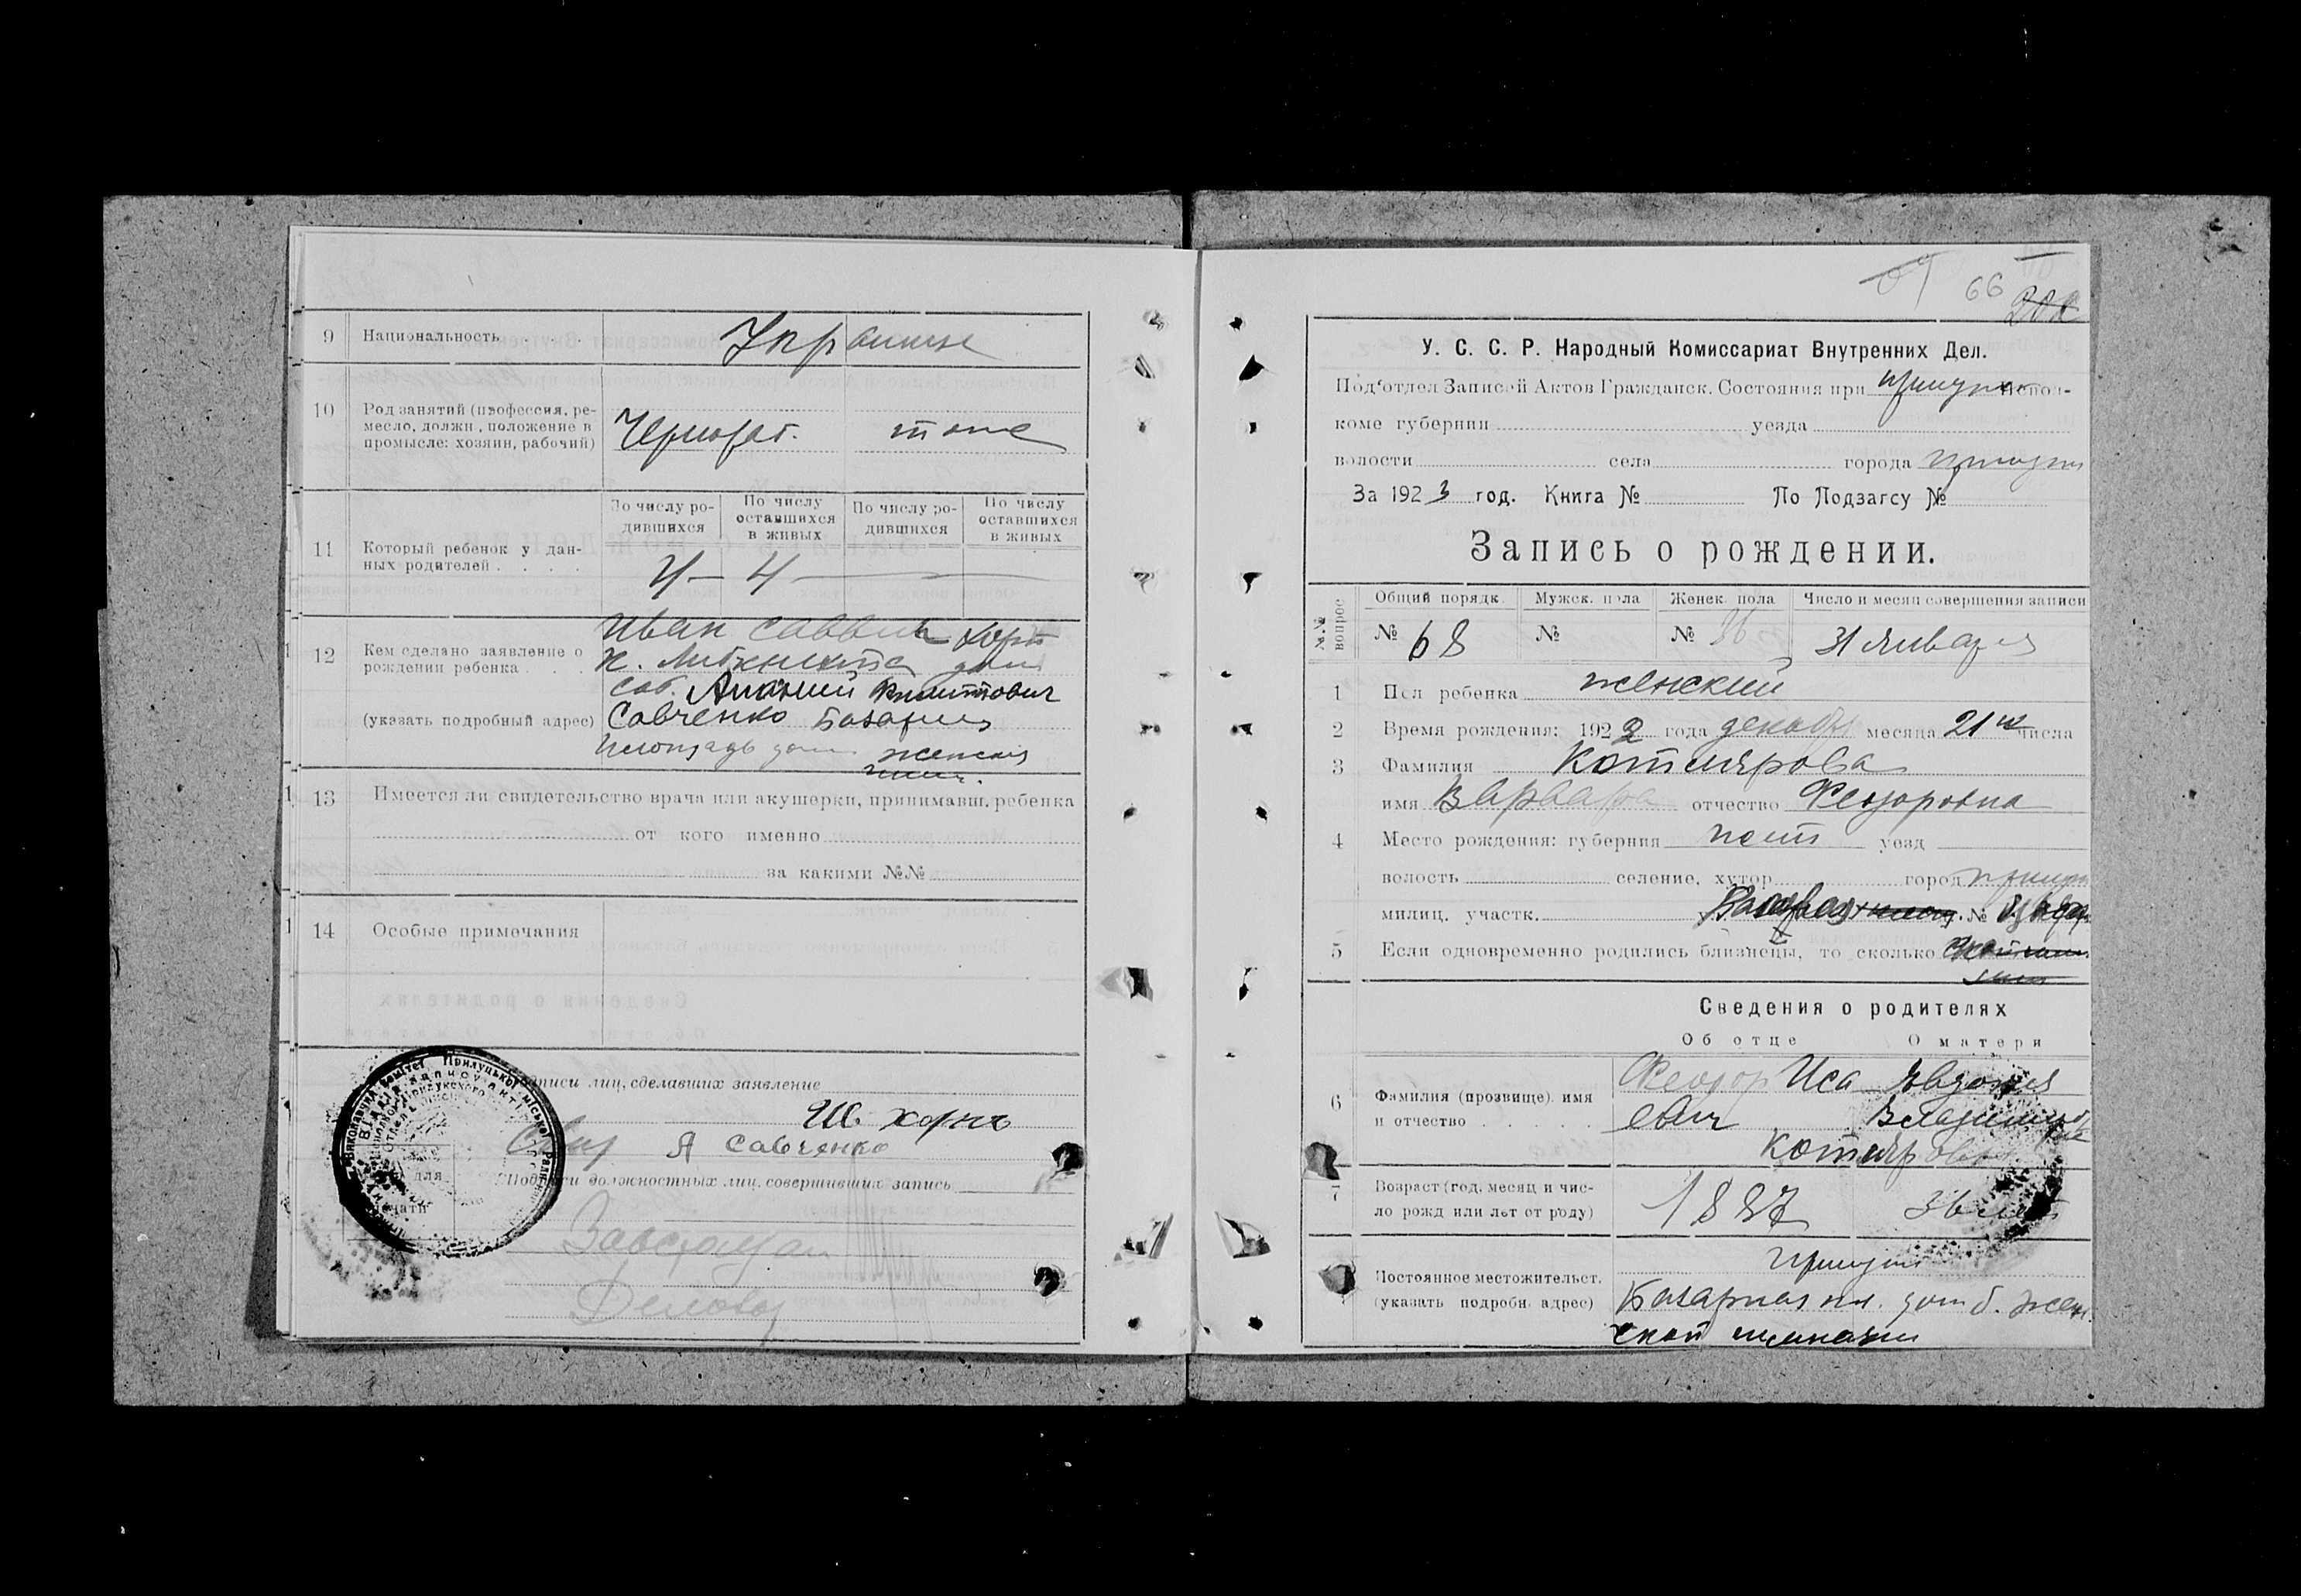 9 Национальность Украинск
10 Род занятий (профессия, ре-
месло, должн., положение в
промысле: хозяин, рабочий)
Чернораб. тоже
11 Который ребенок у дан-
ных родителей
По числу ро-
дившихся
По числу
оставшихся
в живых
По числу ро-
дившихся
По числу
оставшихся
в живых
4 — 4
12 Кем сделано заявление о
рождении ребенка
(указать подробный адрес)
Иван Саввич
К. Либкнехта дом
соб. Ананий
Савченко Базарная
площадь дом женская
гимн.
13 Имеется ли свидетельство врача или акушерки, принимавш. ребенка
от кого именно
за какими №№
14 Особые примечания
Подписи лиц, сделавших заявление
Ив
А Савченко
Подписи должностных лиц, совершивших запись
для
печати
Деловод
66
У. С. С. Р. Народный Комиссариат Внутренних Дел.
Под'отдел Записей Актов Гражданск. Состояния при Прилукс Испол-
коме губернии уезда
волости села города Прилуки
За 1923 год. Книга № По Подзагсу №
Запись о рождении.
№№ вопрос
Общий порядк. Мужск. пола Женск. пола Число и месяц совершения записи
№ 68 № № 36 31 Января
1 Пол ребенка женский
2 Время рождения: 1922 года декабр месяца 21го числа
3 Фамилия Котлярова
имя Варвара отчество Феодоровна
4 Место рождения: губерния Полт уезд
волость селение, хутор город Прилуки
милиц. участк. №
5 Если одновременно родились близнецы, то сколько
Сведения о родителях
Об отце О матери
6 Фамилия (прозвище) имя
и отчество
Феодор Иса Явдокия
евич Владимировна
Котляровы
7 Возраст (год, месяц и чис-
ло рожд или лет от роду)
1887 36 лет
Постоянное местожительст.
(указать подробн. адрес)
Прилуки
Базарная пл. дом б. жен.
ской гимназии